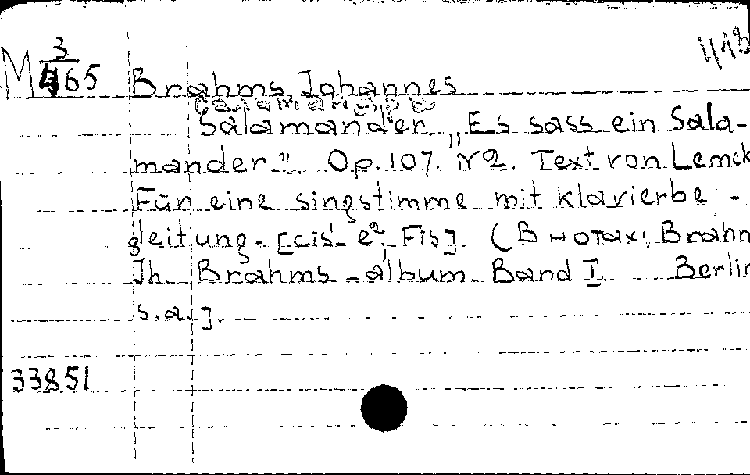 M 3/465 Brahms, Johannes
Salamander „Es sass ein Sala-
mander". Op. 107. N 2. Text von Lemck
Für eine singstimme mit klavierbe-
gleitung. [cis'-e², Fis]. (В нотах: Brahm
Jh. Brahms-album Band I Berlin
s.a.].
33851